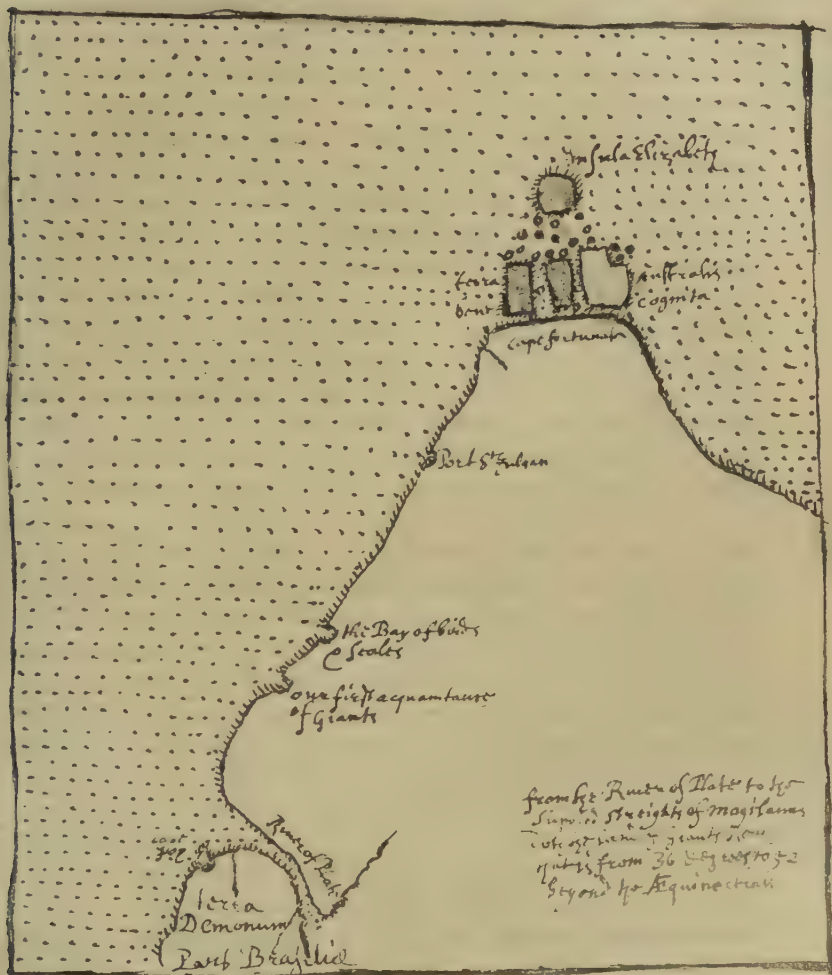 Insula Elizabeth
terra australis
bene cognita
Cape fortunate
Port St Julyan
the Bay of birds
& Seales
our first acquaintance
of Giants
from the River of Plate to the
Streights of Magilanus
giants
from 36 degrees to 52
beyond the Æquinoctian
River of Plate
cape
terra
Demonum
Parts Brazilie